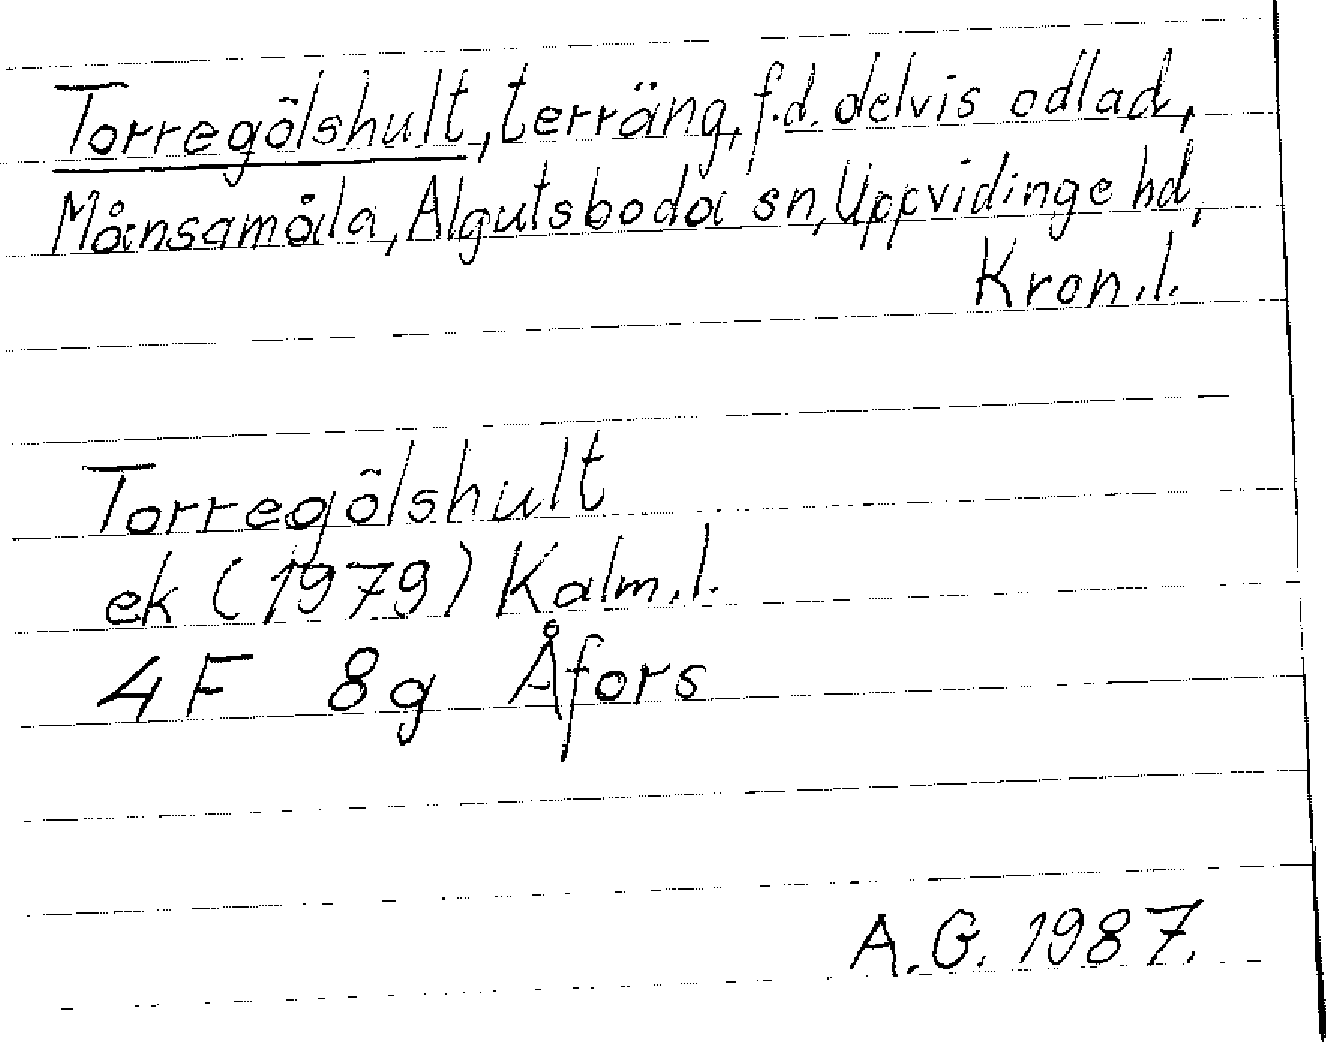 Torregölshult, terräng, f.d. delvis odlad,
Månsamåla, Algutsboda sn, Uppvidinge hd,
Kron.l.
Torregölshult
ek (1979) Kalm.l.
4F 8g Åfors
A.G. 1987.